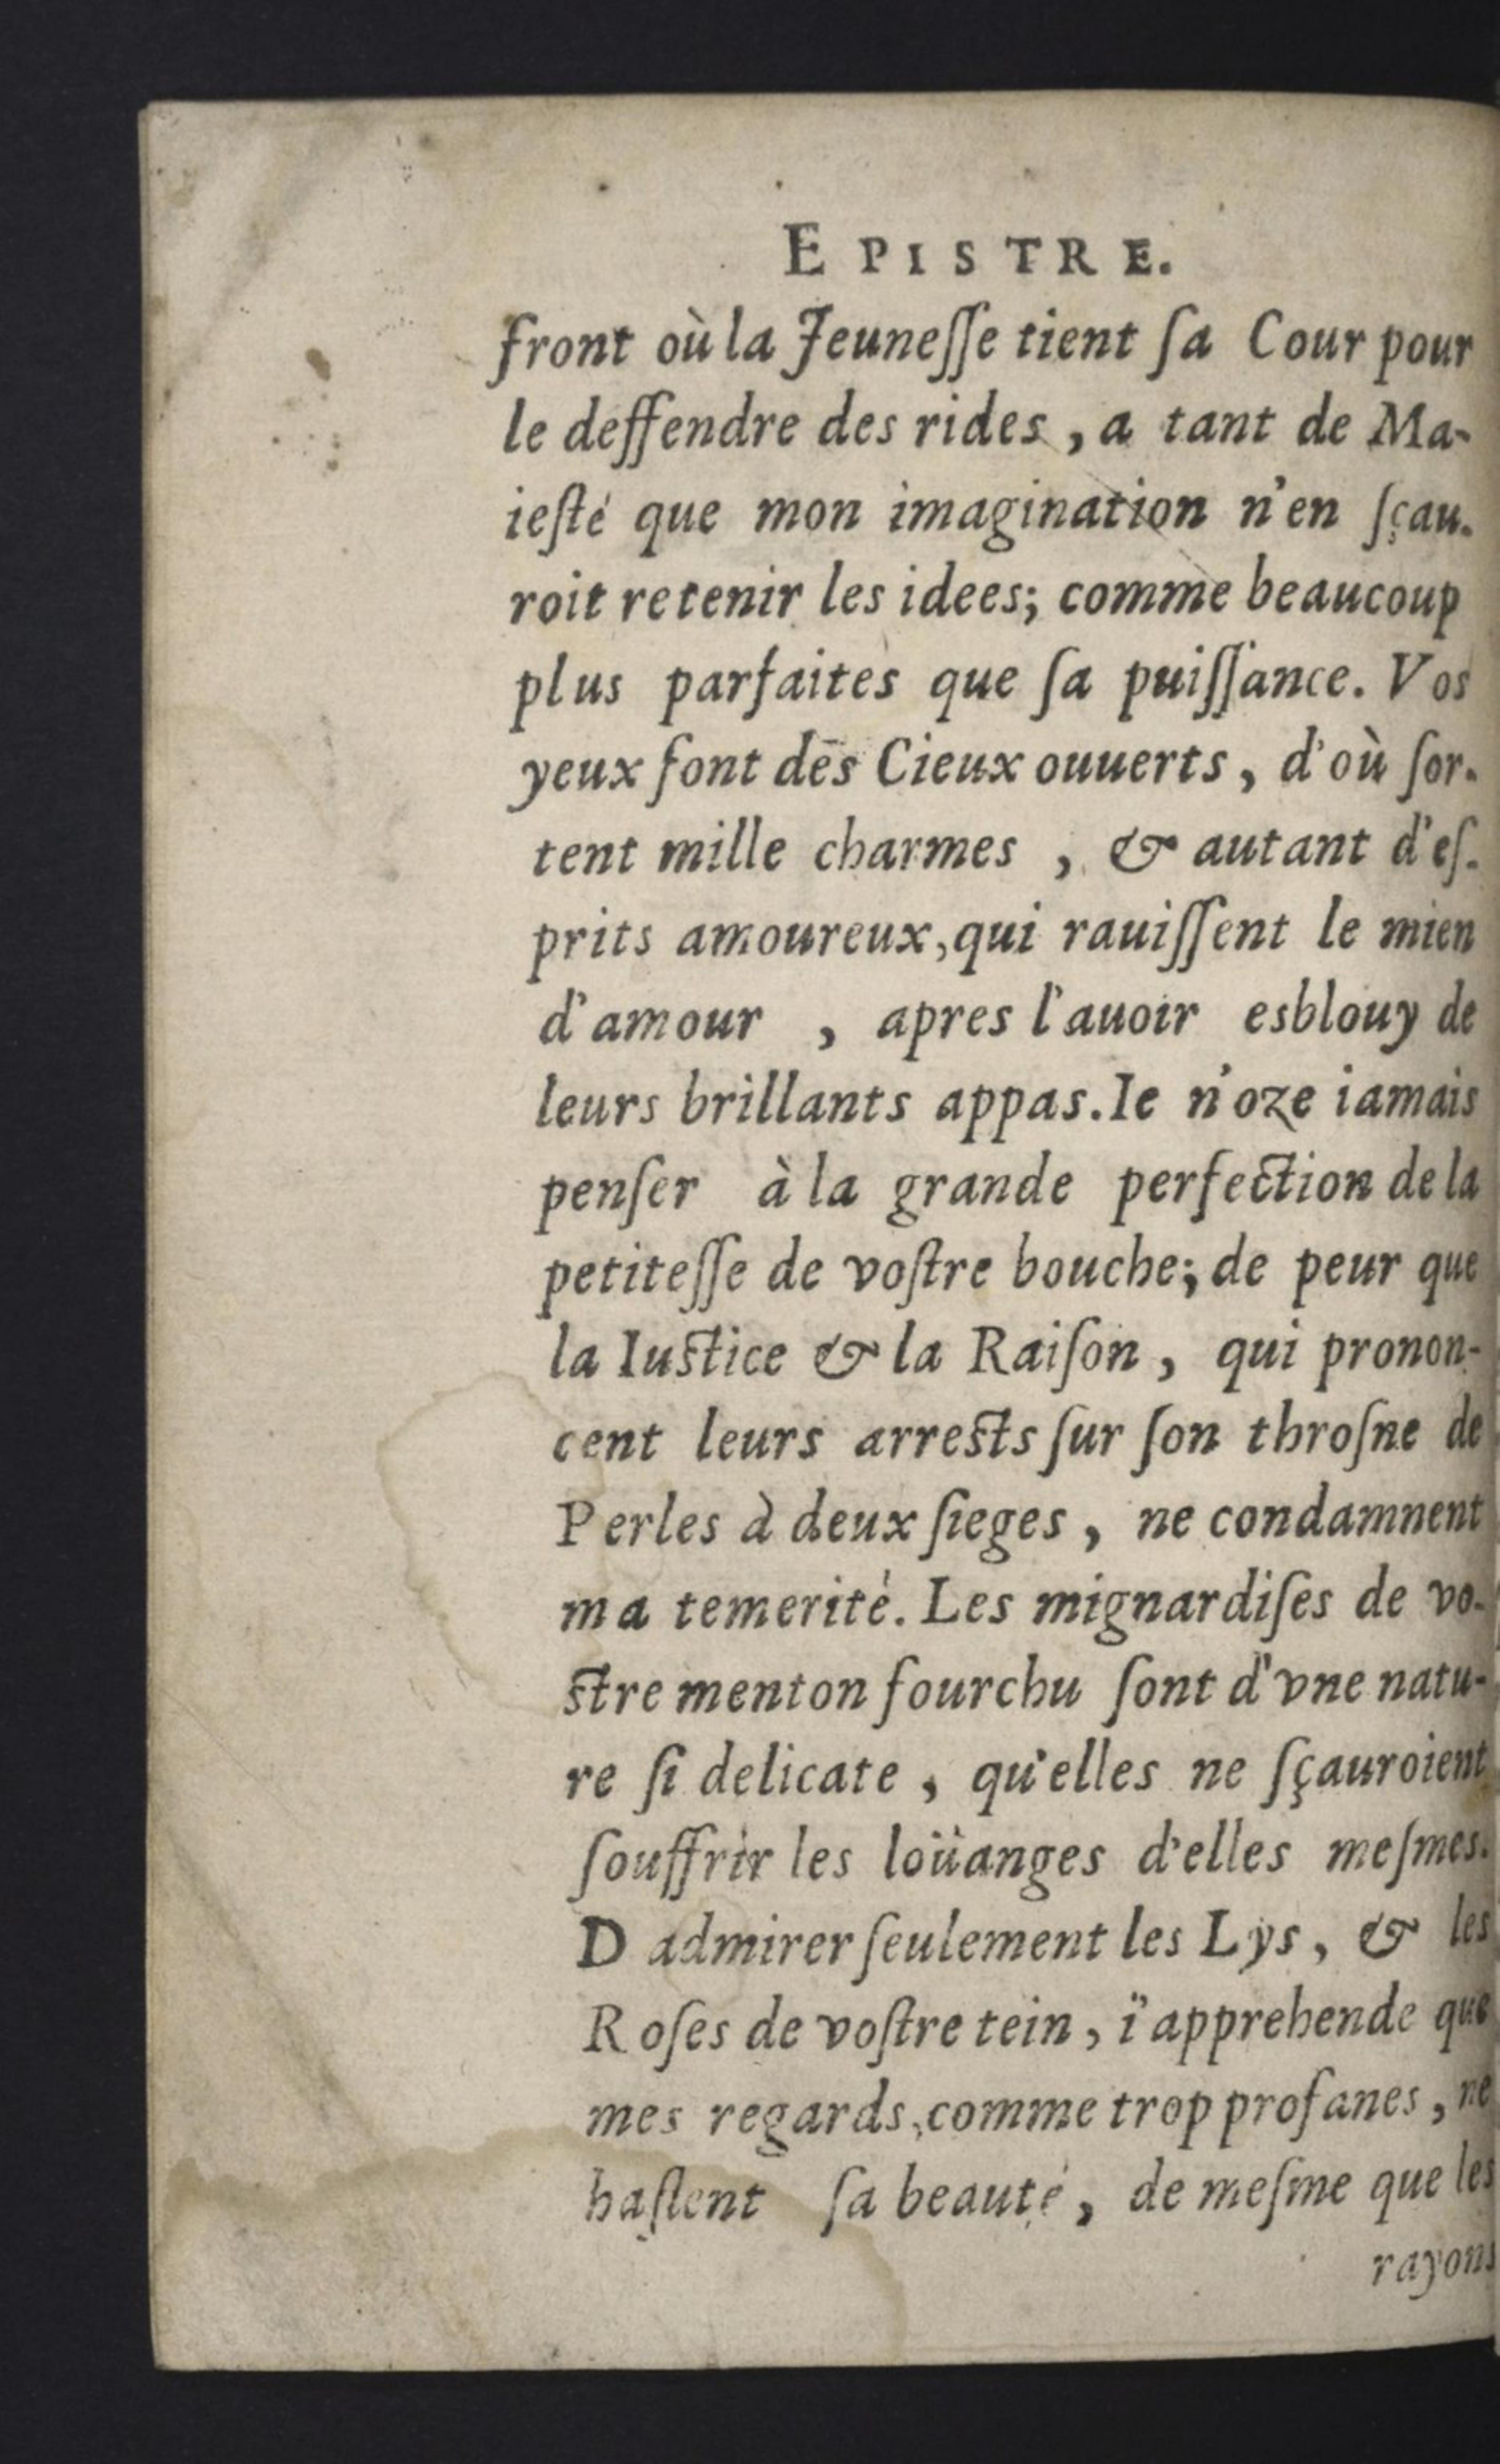 EPISTRE.
front où la Jeuneſſe tient ſa Cour pour
le deffendre des rides, a tant de Ma-
ieſté que mon imagination n'en ſçau-
roit retenir les idees; comme beaucoup
plus parfaites que ſa puiſſance. Vos
yeux ſont des Cieux ouuerts, d'où ſor-
tent mille charmes, & autant d'eſ-
prits amoureux, qui rauiſſent le mien
d'amour, apres l'auoir esblouy de
leurs brillants appas. Ie n'oze iamais
penſer à la grande perfection de la
petiteſſe de voſtre bouche; de peur que
la Iuſtice & la Raiſon, qui pronon-
cent leurs arreſts ſur ſon throſne de
Perles à deux ſieges, ne condamnent
ma temerité. Les mignardiſes de vo-
ſtre menton fourchu ſont d'vne natu-
re ſi delicate, qu'elles ne ſçauroient
ſouffrir les loüanges d'elles meſmes.
D admirer ſeulement les Lys, & les
Roſes de voſtre tein, i'apprehende que
mes regards, comme trop profanes, ne
haſlent ſa beauté, de meſme que les
rayons